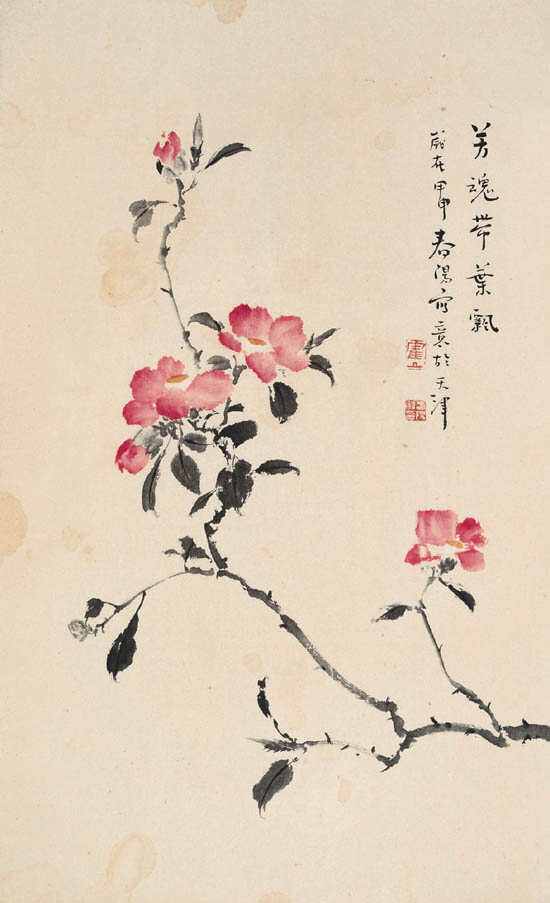 芳魂帶葉飄
歲在甲申春湯寫意於天津